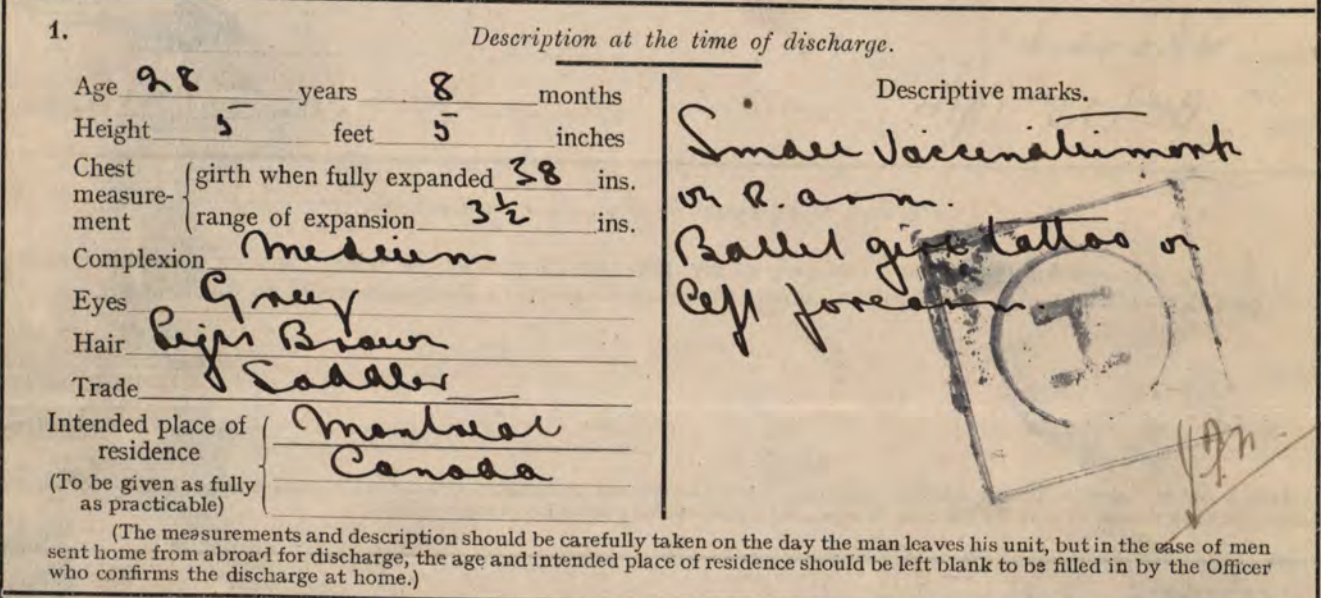 1.
Description at the time of discharge.
Age 28 years 8 months
Height 5 feet 5 inches
Chest measure-ment
girth when fully expanded 38 ins.
range of expansion 3½ ins.
Complexion Medium
Eyes Grey
Hair Light Brown
Trade Saddler
Intended place of residence
Montreal
Canada
(To be given as fully as practicable)
Descriptive marks.
Small Vaccination mark
on R. arm.
Ballet girl tattoo on
left forearm.
I
(The measurements and description should be carefully taken on the day the man leaves his unit, but in the case of men
sent home from abroad for discharge, the age and intended place of residence should be left blank to be filled in by the Officer
who confirms the discharge at home.)